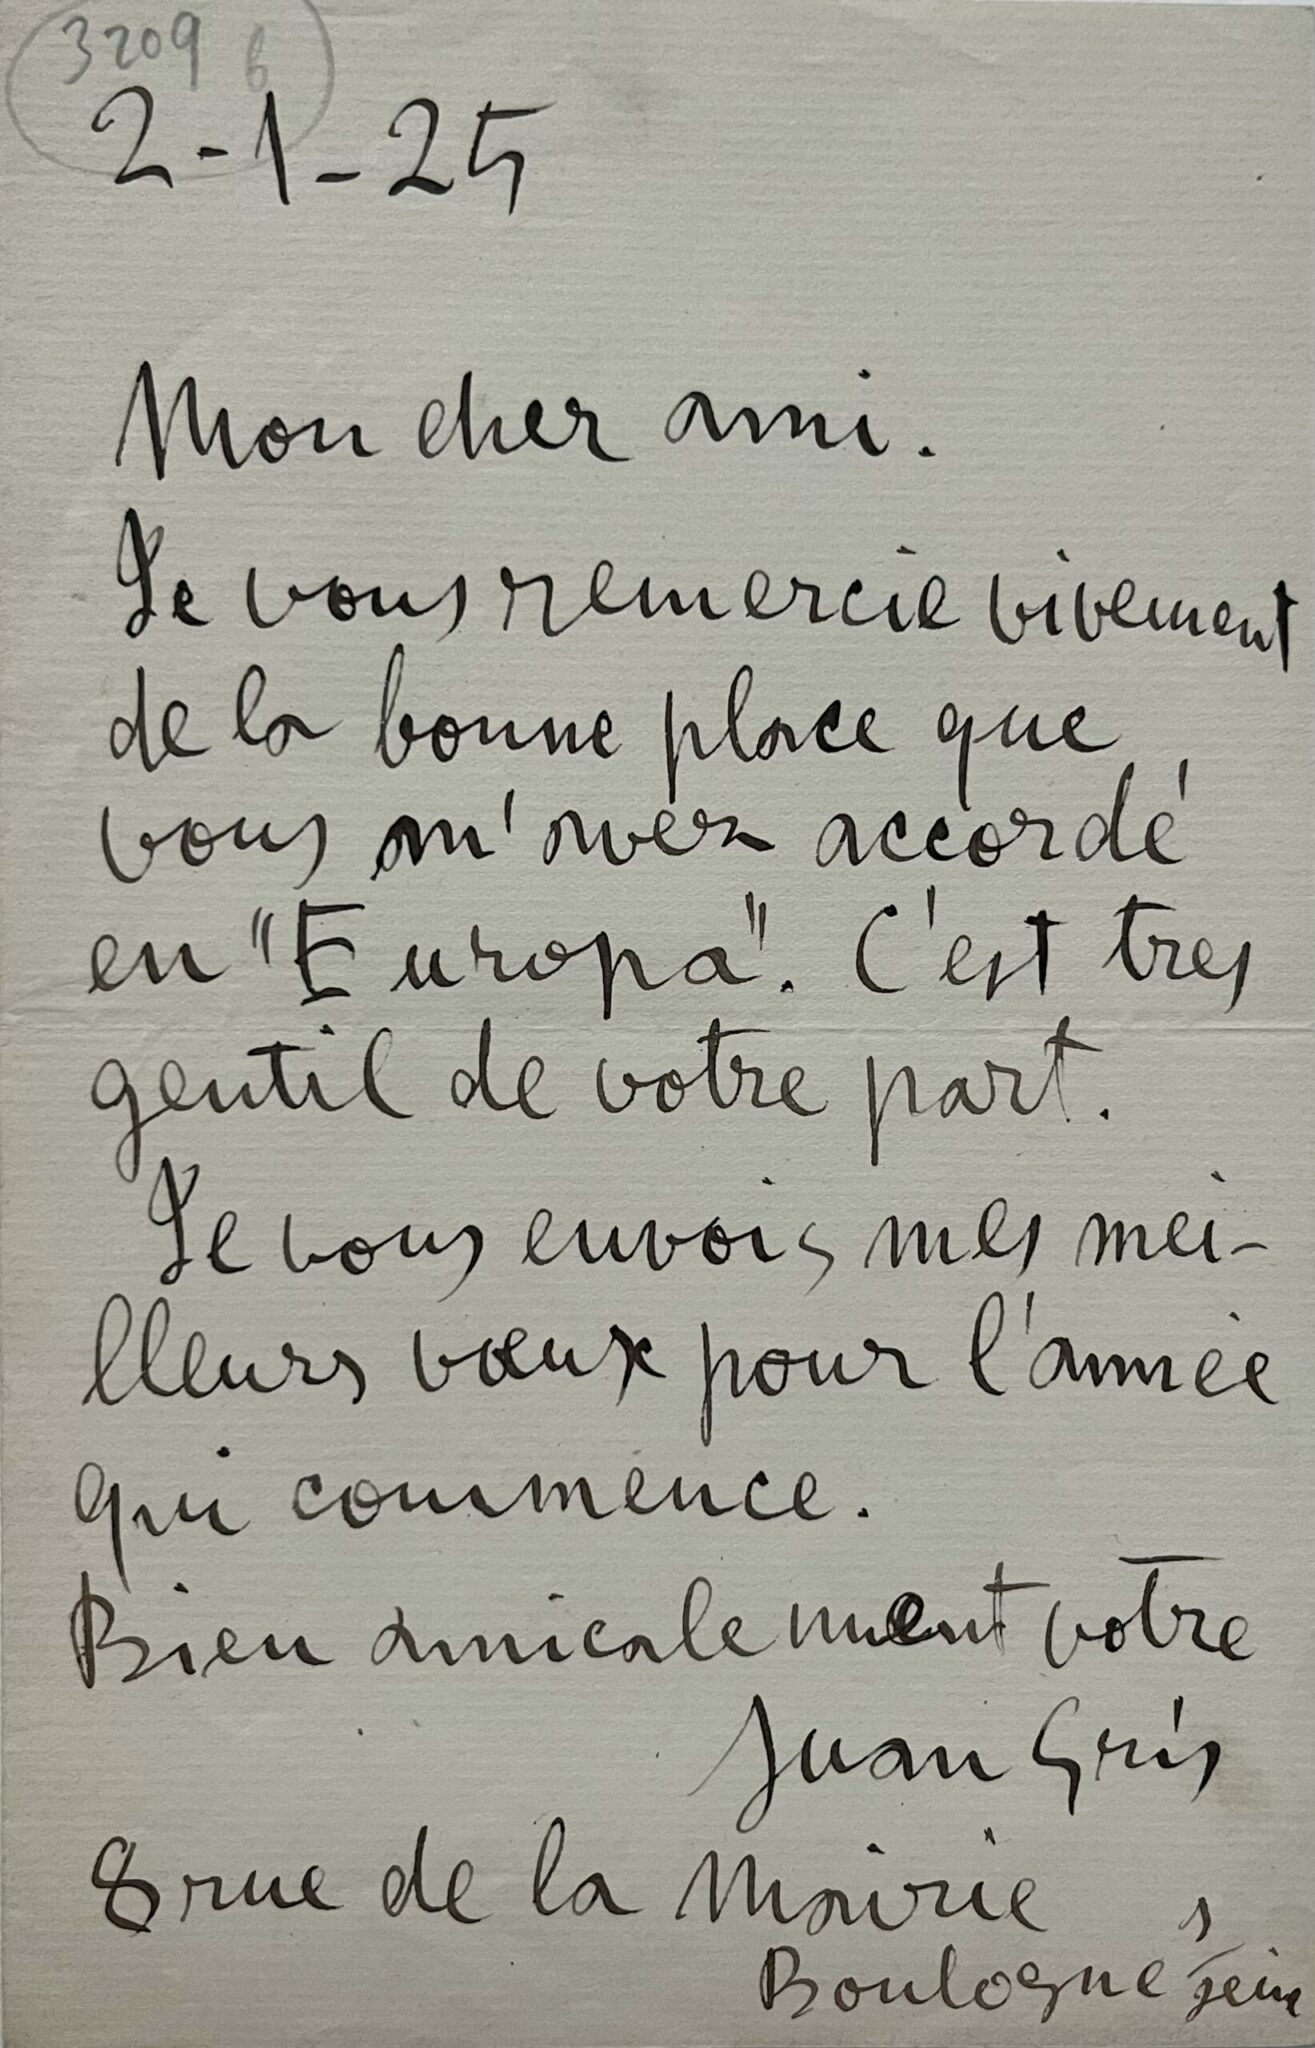 3209 b
2-1-25
Mon cher ami.
Je vous remercie vivement
de la bonne place que
vous m'avez accordé
en "Europa". C'est tres
gentil de votre part.
Je vous envois mes mei-
lleurs vœux pour l'année
qui commence.
Bien amicalement votre
Juan Gris
8 rue de la Mairie
Boulogne s/Seine